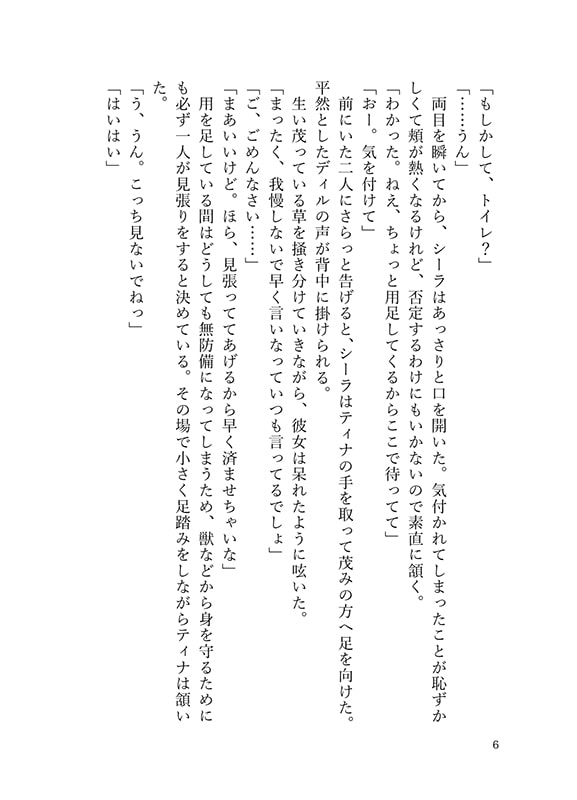 「もしかして、トイレ？」
「……うん」
　両目を瞬いてから、シーラはあっさりと口を開いた。気付かれてしまったことが恥ずか
しくて頬が熱くなるけれど、否定するわけにもいかないので素直に頷く。
「わかった。ねえ、ちょっと用足してくるからここで待ってて」
「おー。気を付けて」
　前にいた二人にさらっと告げると、シーラはティナの手を取って茂みの方へ足を向けた。
平然としたディルの声が背中に掛けられる。
　生い茂っている草を掻き分けていきながら、彼女は呆れたように呟いた。
「まったく、我慢しないで早く言いなっていつも言ってるでしょ」
「ご、ごめんなさい……」
「まあいいけど。ほら、見張っててあげるから早く済ませちゃいな」
　用を足している間はどうしても無防備になってしまうため、獣などから身を守るために
も必ず一人が見張りをすると決めている。その場で小さく足踏みをしながらティナは頷い
た。
「う、うん。こっち見ないでねっ」
「はいはい」
6